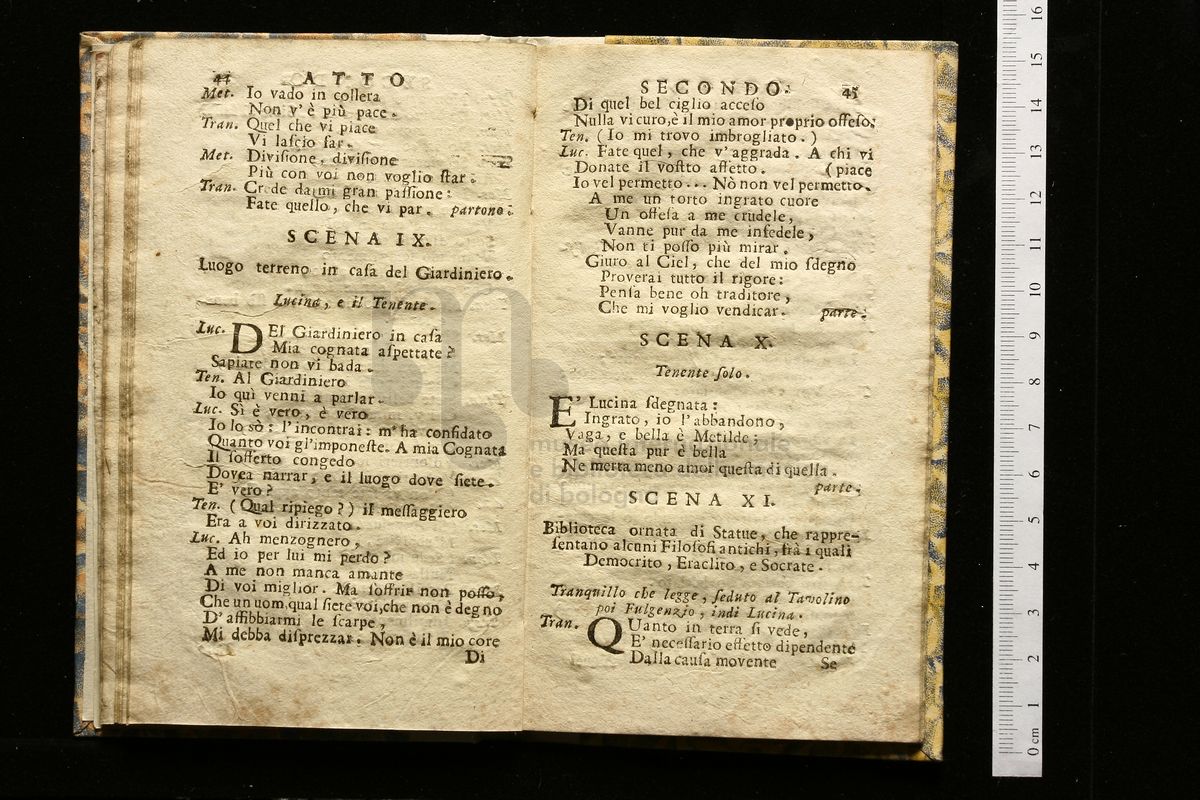 44 ATTO
Met. Io vado in collera
Non v' è più pace.
Tran. Quel che vi piace
Vi lascio far.
Met. Divisione, divisione
Più con voi non voglio star.
Tran. Crede darmi gran passione:
Fate quello, che vi par. partono.
SCENA IX.
Luogo terreno in casa del Giardiniero.
Lucina, e il Tenente.
Luc. DEl Giardiniero in casa
Mia cognata aspettate?
Sapiate non vi bada.
Ten. Al Giardiniero
Io quì venni a parlar.
Luc. Sì è vero, è vero
Io lo sò: l'incontrai: m'ha confidato
Quanto voi gl'imponeste. A mia Cognata
Il sofferto congedo
Dovea narrar, e il luogo dove siete.
E' vero?
Ten. (Qual ripiego?) il messaggiero
Era a voi dirizzato.
Luc. Ah menzognero,
Ed io per lui mi perdo?
A me non manca amante
Di voi miglior. Ma soffrir non posso,
Che un uom qual siete voi, che non è degno
D'affibbiarmi le scarpe,
Mi debba disprezzar. Non è il mio core
Di
SECONDO. 45
Di quel bel ciglio acceso
Nulla vi curo, è il mio amor proprio offeso.
Ten. (Io mi trovo imbrogliato.)
Luc. Fate quel, che v'aggrada. A chi vi
Donate il vostto affetto. (piace
Io vel permetto... Nò non vel permetto.
A me un torto ingrato cuore
Un offesa a me crudele,
Vanne pur da me infedele,
Non ti posso più mirar.
Giuro al Ciel, che del mio sdegno
Proverai tutto il rigore:
Pensa bene oh traditore,
Che mi voglio vendicar. parte.
SCENA X.
Tenente solo.
E' Lucina sdegnata:
Ingrato, io l'abbandono,
Vaga, e bella è Metilde;
Ma questa pur è bella
Ne merta meno amor questa di quella.
parte.
SCENA XI.
Biblioteca ornata di Statue, che rappre-
sentano alcuni Filosofi antichi, frà i quali
Democrito, Eraclito, e Socrate.
Tranquillo che legge, seduto al Tavolino
poi Fulgenzio, indi Lucina.
Tran. QUanto in terra si vede,
E' necessario effetto dipendente
Dalla causa movente
Se
0 cm 1 2 3 4 5 6 7 8 9 10 11 12 13 14 15 16
di bologna